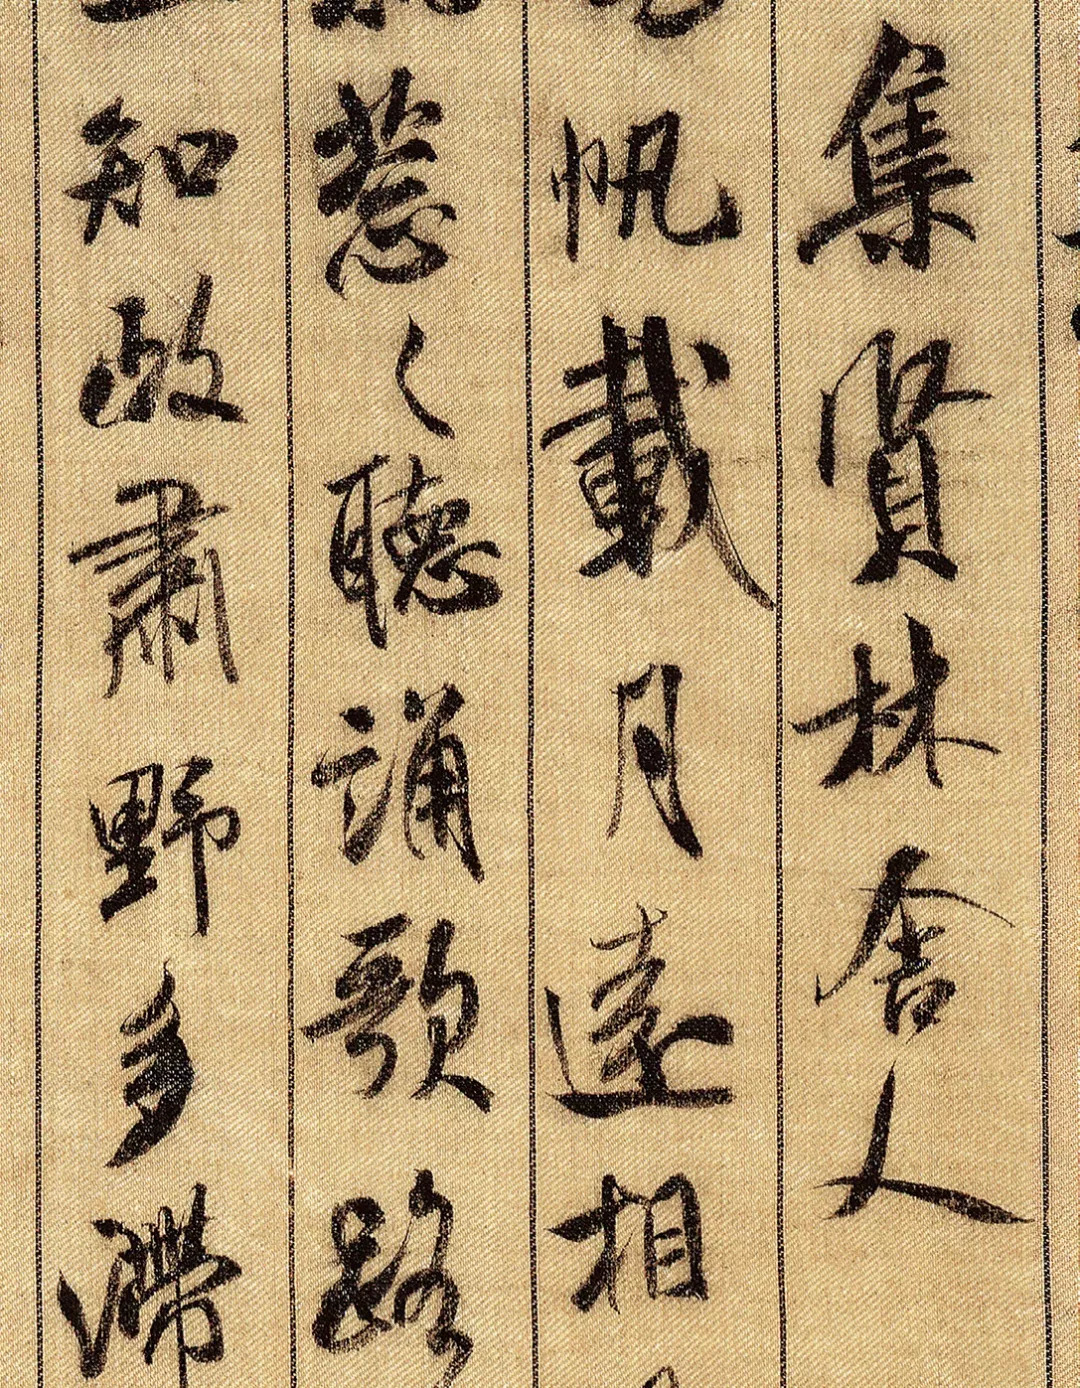 集賢林舍人
帆載月遠相
葱々聽誦歌路
知政肅野多滯